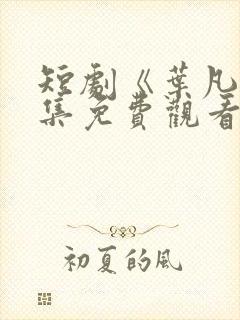 短劇《葉凡
集免費觀看
初夏的風